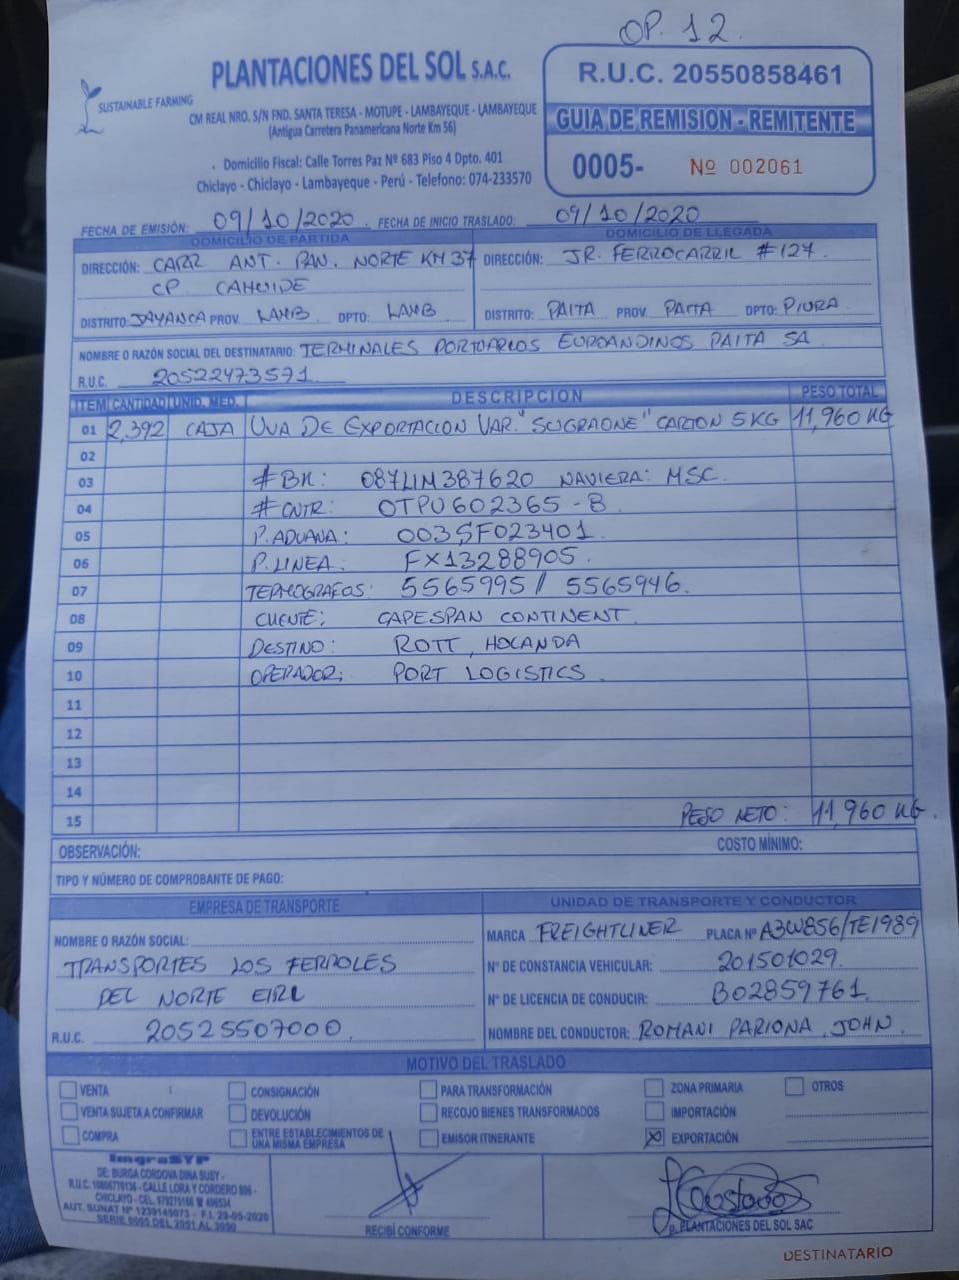 OP. 12.
SUSTAINABLE FARMING
PLANTACIONES DEL SOL S.A.C.
CM REAL NRO. S/N FND. SANTA TERESA - MOTUPE - LAMBAYEQUE - LAMBAYEQUE
(Antigua Carretera Panamericana Norte Km 56)
. Domicilio Fiscal: Calle Torres Paz Nº 683 Piso 4 Dpto. 401
Chiclayo - Chiclayo - Lambayeque - Perú - Telefono: 074-233570
R.U.C. 20550858461
GUIA DE REMISION - REMITENTE
0005- Nº 002061
FECHA DE EMISIÓN: 09/10/2020. FECHA DE INICIO TRASLADO: 09/10/2020
DOMICILIO DE PARTIDA
DIRECCIÓN: CARR ANT. PAN. NORTE KM 37
CP. CAHUIDE
DISTRITO: JAYANCA PROV. LAMB DPTO: LAMB
DOMICILIO DE LLEGADA
DIRECCIÓN: JR. FERROCARRIL #127.
DISTRITO: PAITA PROV. PAITA DPTO: PIURA
NOMBRE O RAZÓN SOCIAL DEL DESTINATARIO: TERMINALES PORTUARIOS EUROANDINOS PAITA SA
R.U.C. 20522473571
ITEM CANTIDAD UNID. MED. DESCRIPCION PESO TOTAL
01 2,392 CAJA UVA DE EXPORTACION VAR. "SUGRAONE" CARTON 5 KG 11,960 KG
02
03 #BK: 087LIM387620 NAVIERA: MSC.
04 #CNTR: OTPU602365-8
05 P. ADUANA: 003SF023401.
06 P. LINEA: FX13288905.
07 TERMOGRAFOS: 5565995 // 5565946.
08 CLIENTE: CAPESPAN CONTINENT
09 DESTINO: ROTT, HOLANDA
10 OPERADOR: PORT LOGISTICS
11
12
13
14
15 PESO NETO: 11,960 KG.
OBSERVACIÓN: COSTO MÍNIMO:
TIPO Y NÚMERO DE COMPROBANTE DE PAGO:
EMPRESA DE TRANSPORTE
NOMBRE O RAZÓN SOCIAL:
TRANSPORTES LOS FERROLES
DEL NORTE EIRL
R.U.C. 20525507000.
UNIDAD DE TRANSPORTE Y CONDUCTOR
MARCA FREIGHTLINER PLACA Nº A3W856/TE1989
Nº DE CONSTANCIA VEHICULAR: 201501029.
Nº DE LICENCIA DE CONDUCIR: B02859761.
NOMBRE DEL CONDUCTOR: ROMANI PARIONA JOHN.
MOTIVO DEL TRASLADO
VENTA CONSIGNACIÓN PARA TRANSFORMACIÓN ZONA PRIMARIA OTROS
VENTA SUJETA A CONFIRMAR DEVOLUCIÓN RECOJO BIENES TRANSFORMADOS IMPORTACIÓN
COMPRA ENTRE ESTABLECIMIENTOS DE UNA MISMA EMPRESA EMISOR ITINERANTE X EXPORTACIÓN
ImgraSYP
DE: BURGA CORDOVA DINA SUSY -
CALLE LORA Y CORDERO
SERIE 0005 DEL 2051 AL 3050
RECIBÍ CONFORME
p. PLANTACIONES DEL SOL SAC
DESTINATARIO